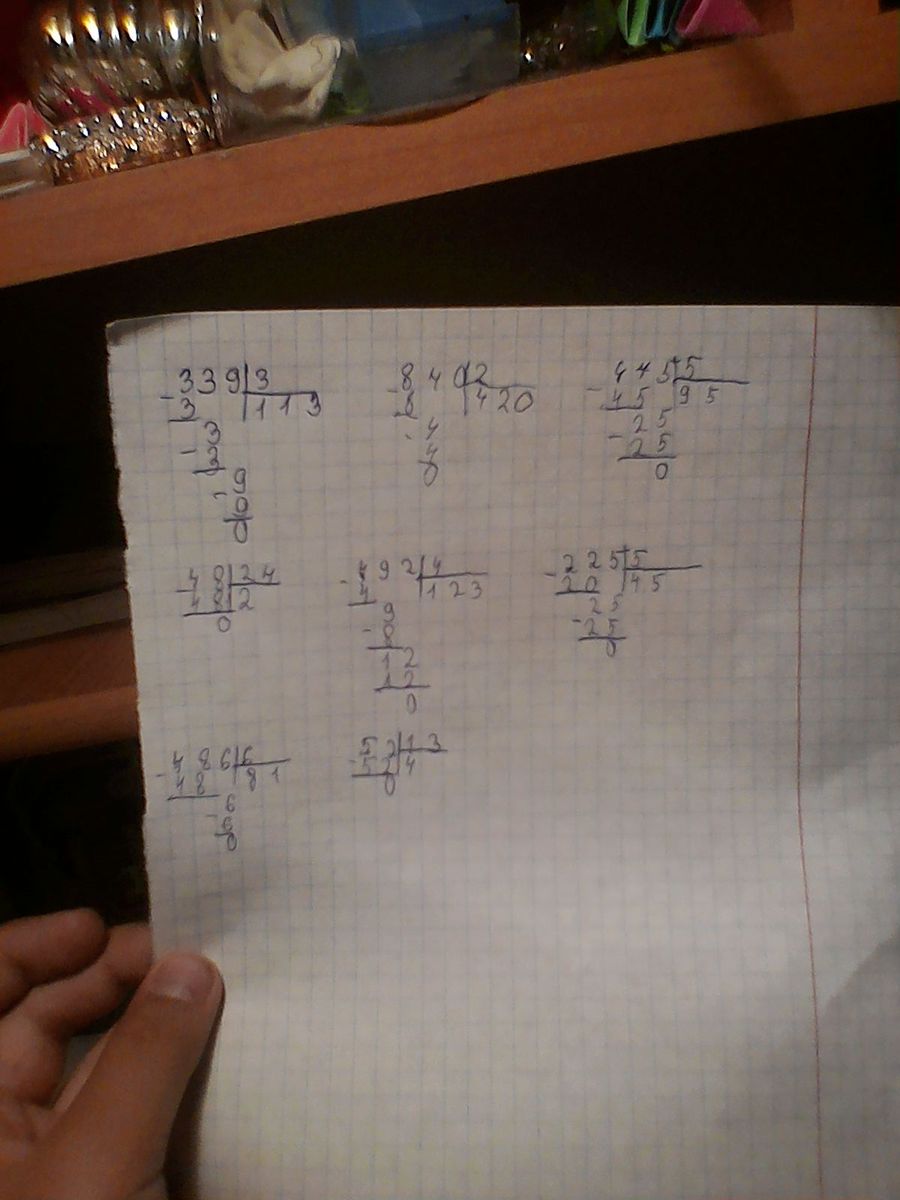 339|3 840|2 445|5
3 |113 8 |420 45 |95
3 4 25
3 4 25
9 0 0
9
0
48|24 492|4 225|5
48|2 4 |123 20 |45
0 9 25
8 25
12 0
12
0
486|6 52|13
48 |81 52|4
6 0
6
0